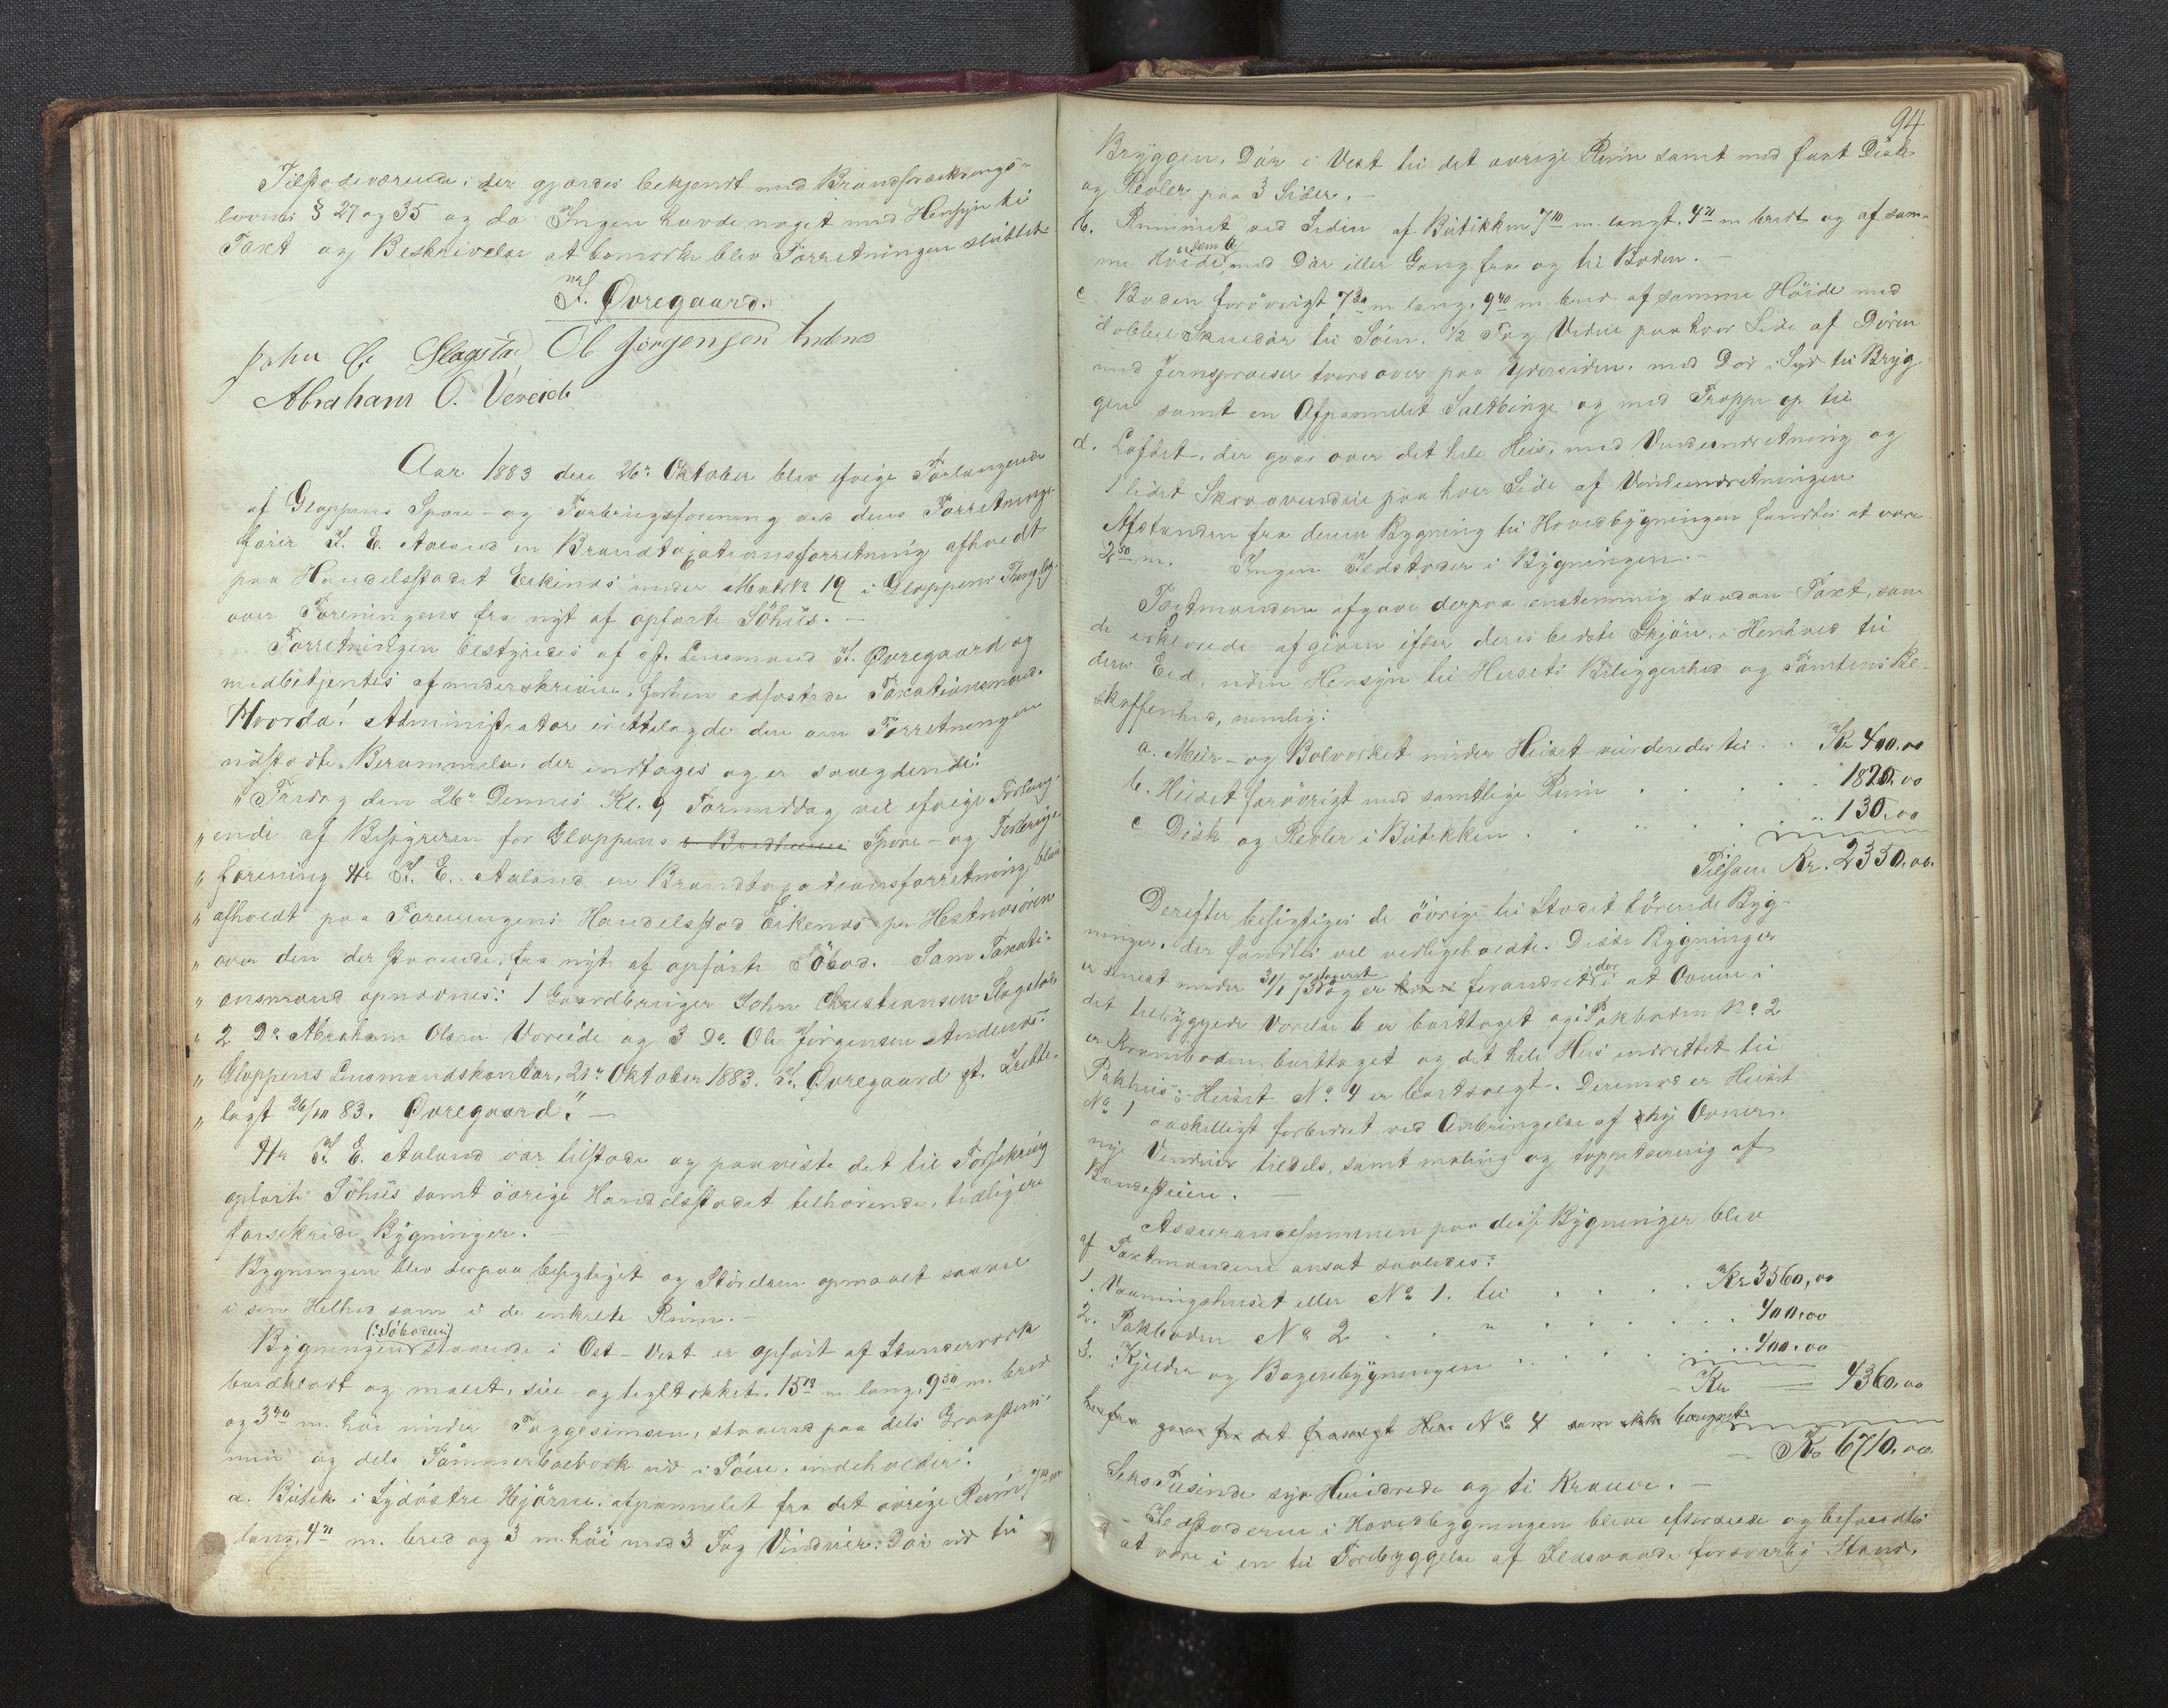 Tilstedeværende, der gjordes bekjendt med Brandforsikrings-
lovens § 27 og 35 og da Ingen havde noget med Hensyn til
Taxt og Beskrivelse at bemærke blev Forretningen sluttet
T. Øvregaard.
John C. Slagstad Ole Jörgensen Andenes
Abraham O. Vereide
Aar 1883 den 26de Oktober blev ifølge Forlangende
af Gloppens Spare- og Forbrugsforening ved dens Forretnings-
fører T. E. Aaland en Brandtaxationsforretning afholdt
paa Handelsstedet Eikenes under Matr № 19 i Gloppens Thinglag
over Foreningens fra nyt af opførte Söhus. —
Forretningen bestyredes af cst. Lensmand T. Øvregaard og
medbetjentes af underskrevne, forhen edfæstede Taxationsmænd.
Hvorda! Administrator irettelagde den om Forretningen
udstædte Berammelse, der indtages og er saalydende:
„Fredag den 26de Dennes Kl. 9 Formiddag vil ifølge Forlang-
„ende af Bestyreren for Gloppens Spare- og Forbrugs-
„forening Hr T. E. Aaland en Brandtaxationsforretning blive
„afholdt paa Foreningens Handelssted Eikenes paa Hestnesören
„over den der staaende, fra nyt af opförte Söbod. Som Taxati-
„onsmænd opnævnes: 1 Gaardbruger John Christiansen Slagstad
„2 Do Abraham Olsen Vereide og 3 Do Ole Jörgensen Andenes.
„Gloppens Lensmandskontor, 21de Oktober 1883. T. Øvregaard cst. Irette-
„lagt 26/10 83. Øvregaard." —
Hr T. E. Aaland var tilstede og paaviste det til Forsikring
opførte Söhus samt övrige Handelsstedet tilhörende, tidligere
forsikrede Bygninger. —
Bygningen blev derpaa besigtiget og Størrelsen opmaalt saavel
i sin Helhed som i de enkelte Rum. —
(:Söboden:)
Bygningen staaende i Öst-Vest er opfört af Stenderværk
bordklædt og malet, sive- og tegltækket, 15 m lang, 9 50 m. bred
og 3 m. höi under Taggesimsen, staaende paa dels Graastens-
mur og dels Tömmerbolværk ud i Söen, indeholder:
a. Butik i Sydöstre Hjörne, afpannelet fra det övrige Rum, 7 10 m
lang, 4 m. bred og 3 m. höi med 3 Fag Vinduer. Dör ud til
94
Bryggen, Dör i Vest til det övrige Rum samt med fast Disk
og Reoler paa 3 Sider. —
b. Rummet ved Siden af Butikken 7 10 m. langt, 4 m bredt og af sam-
me Höide som a, med Dör eller Gang fra og til Boden. —
c. Boden forövrigt 7 30 m lang, 9 40 m bred af samme Höide med
dobbel Skuedör til Söen, 1/2 Fag Vindue paa hver Side af Dören
med Jernsprosser tvers over paa Ydersiden, med Dör i Syd til Bryg-
gen samt en Afpannelet Saltbinge og med Trappe op til
d. Loftet, der gaar over det hele Hus, med Vindeindretning og
1 lidet Skraavindue paa hver Side af Vindeindretningen
Afstanden fra denne Bygning til Hovedbygningen fandtes at være
2 50 m. Ingen Ildsteder i Bygningen. —
Taxtmændene afgave derpaa enstemmig saadan Taxt, som
de erklærede afgiven efter deres bedste Skjön, i Henhold til
deres Eed, uden Hensyn til Husets Beliggenhed og Tomtens Be-
skaffenhed, nemlig:
a. Muur- og Bolværket under Huset vurderedes til . . Kr 400.00
b. Huset forövrigt med samtlige Rum . . . . . 1820.00
c Disk og Reoler i Butikken . . . . . . „ 130.00
Tilsam Kr. 2350.00.
Derefter besigtiges de övrige til Stedet hörende Byg-
ninger, der fandtes vel vedligeholdte. Disse Bygninger
er senest under 31/1 og er forandret deri at Ovnen i
det tilbyggede Værelse b er borttaget og i Pakboden № 2
er Kramboden borttaget og det hele Hus indrettet til
Pakhus; Huset № 4 er bortsolgt. Derimod er Huset
№ 1 adskilligt forbedret ved Anbringelse af nye Ovner,
nye Vinduer tildels, samt maling og tappetsering af
Bondestuen. —
Assurancesummen paa disse Bygninger blev
af Taxtmændene ansat saaledes:
1. Vaaningshuset eller № 1. til . . . . Kr 3560,00
2. Pakboden № 2 . . „ . . . . . . 400.00
3. Kjelder og Bageribygningen . . . . . . . 400.00
Kr — 4360,00
herfra gaar fra det frasolgt Hus № 4
— Kr 6710.00.
Sex Tusinde syv Hundrede og ti Kroner. —
Ildstederne i Hovedbygningen bleve efterseede og befandtes
at være i en til Forebyggelse af Ildsvaade forsvarlig Stand.